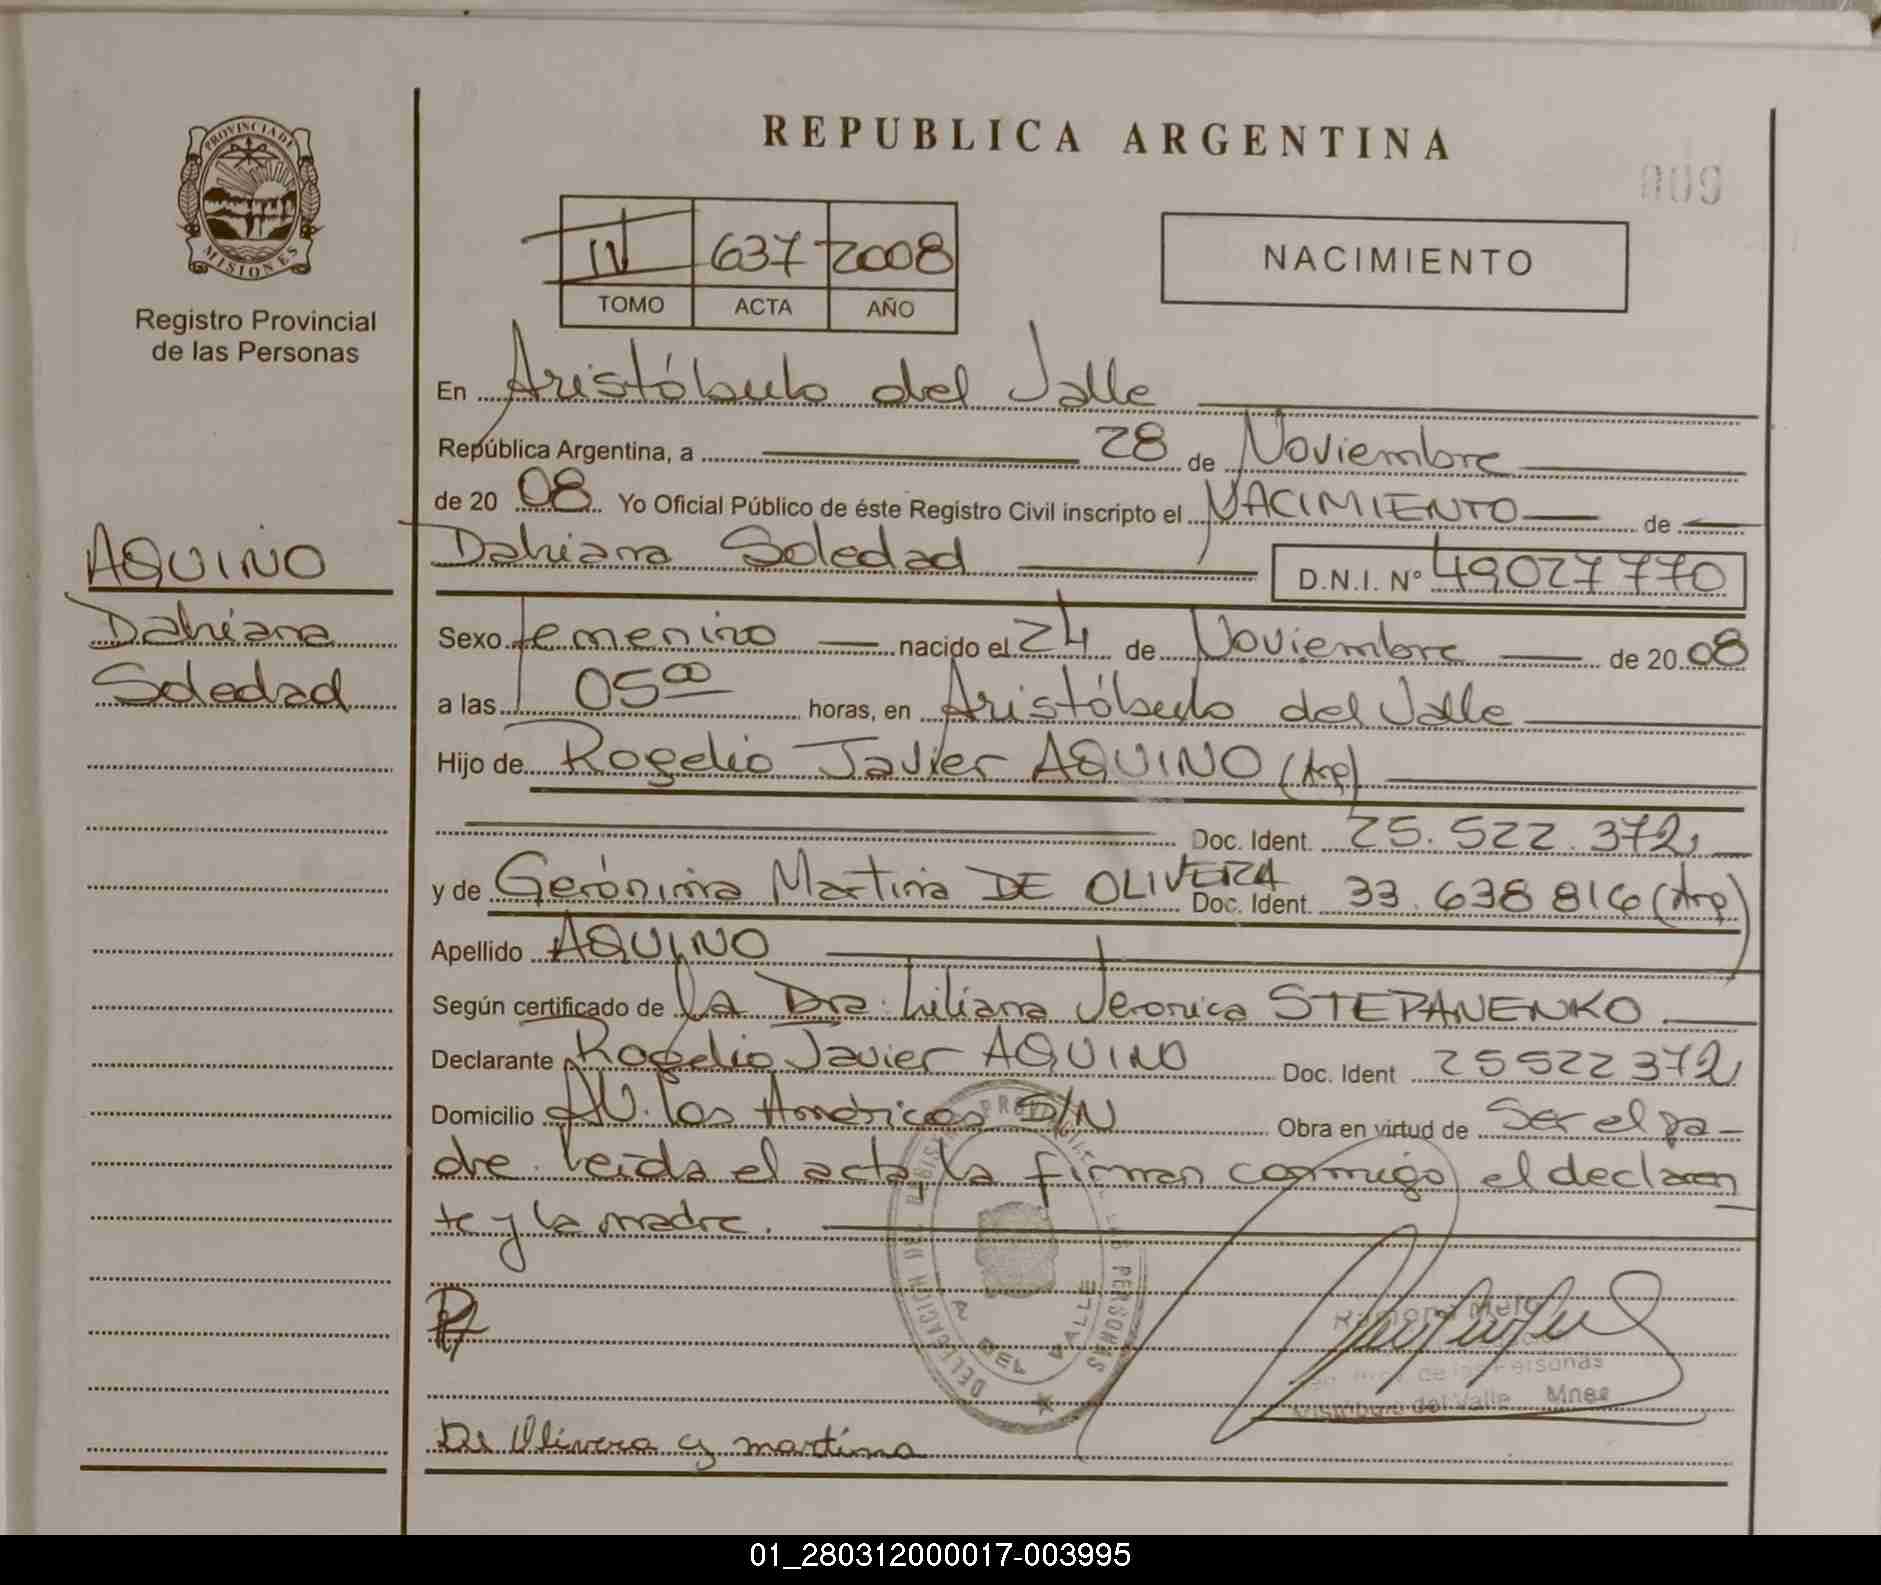 REPUBLICA ARGENTINA
009
PROVINCIA DE MISIONES
Registro Provincial
de las Personas
IV 637 2008
TOMO ACTA AÑO
NACIMIENTO
En Aristóbulo del Valle
República Argentina, a 28 de Noviembre
de 20 08 Yo Oficial Público de éste Registro Civil inscripto el NACIMIENTO de
AQUINO
Dahiana
Soledad
Dahiana Soledad D.N.I. Nº 49027770
Sexo femenino nacido el 24 de Noviembre de 20 08
a las 05 00 horas, en Aristóbulo del Valle
Hijo de Rogelio Javier AQUINO (Arg)
Doc. Ident. 25.522.372
y de Gerónima Martina DE OLIVERA Doc. Ident. 33.638 816 (Arg)
Apellido AQUINO
Según certificado de la Dra. Liliana Veronica STEPANENKO
Declarante Rogelio Javier AQUINO Doc. Ident 25522372
Domicilio AV. las Américas S/N Obra en virtud de Ser el pa-
dre. leída el acta, la firman conmigo el declaran
te y la madre.
DELEGACION DEL REGISTRO PROVINCIAL DE LAS PERSONAS
A DEL VALLE
Ramona Melo
de las Personas
Aristóbulo del Valle Mnes
De Olivera g martina
01_280312000017-003995